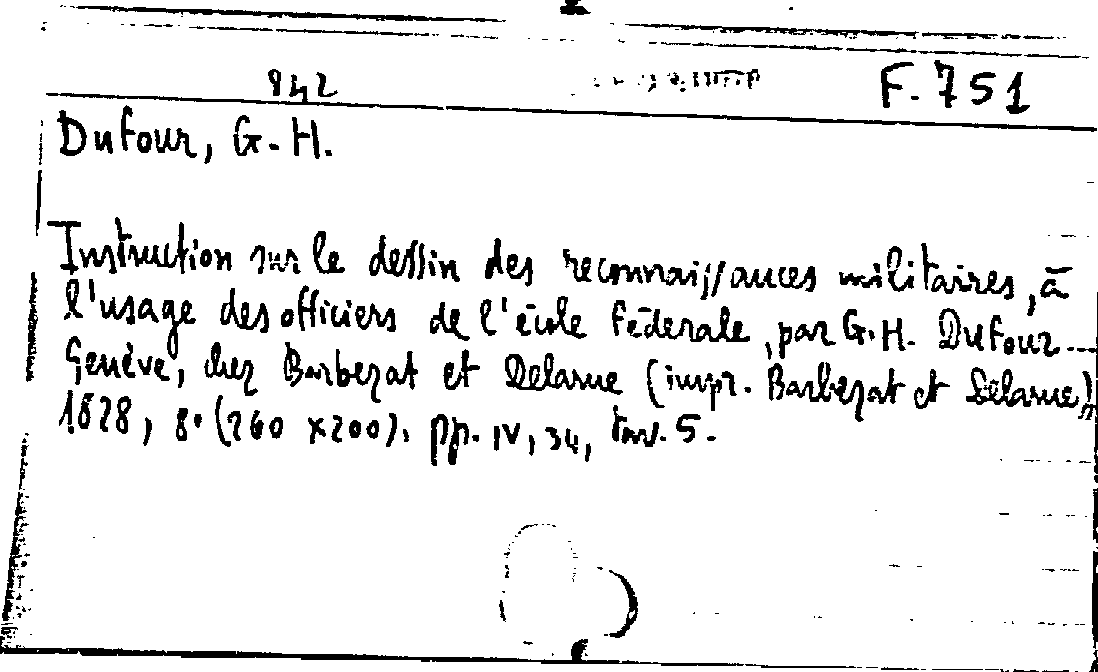 942 F. 751
Dufour, G. H.
Instruction sur le dessin des reconnaissances militaires, à
l'usage des officiers de l'école fédérale, par G. H. Dufour ...
Genève, chez Barbezat et Delarue (impr. Barbezat et Delarue),
1828, 8° (260 x 200). pp. IV, 34, tav. 5.